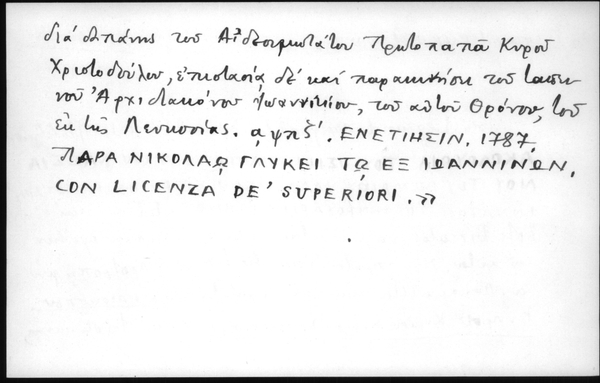 διά δαπάνης του Αἰδεσιμωτάτου Πρωτοπαπᾶ Κυρού
Χριστοδούλου, ἐπιστασίᾳ δέ καί παρακινήσει τοῦ ταπει
νοῦ Ἀρχιδιακόνου Ἰωαννικίου, τοῦ αὐτοῦ Θρόνου, τοῦ
ἐκ τῆς Λευκωσίας. ͵αψπζ΄. ΕΝΕΤΙΗΣΙΝ. 1787.
ΠΑΡΑ ΝΙΚΟΛΑῼ ΓΛΥΚΕΙ Τῼ ΕΞ ΙΩΑΝΝΙΝΩΝ.
CON LICENZA DE' SUPERIORI. »